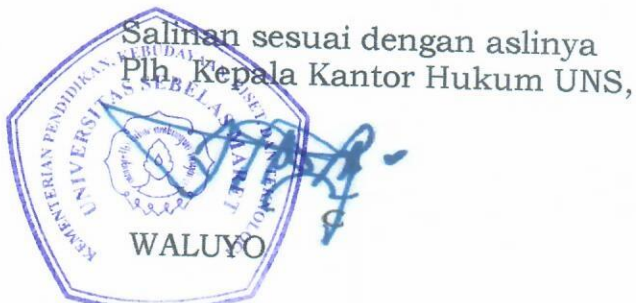 Salinan sesuai dengan aslinya
Plh. Kepala Kantor Hukum UNS,
KEMENTERIAN PENDIDIKAN, KEBUDAYAAN, RISET, DAN TEKNOLOGI
UNIVERSITAS SEBELAS MARET
WALUYO